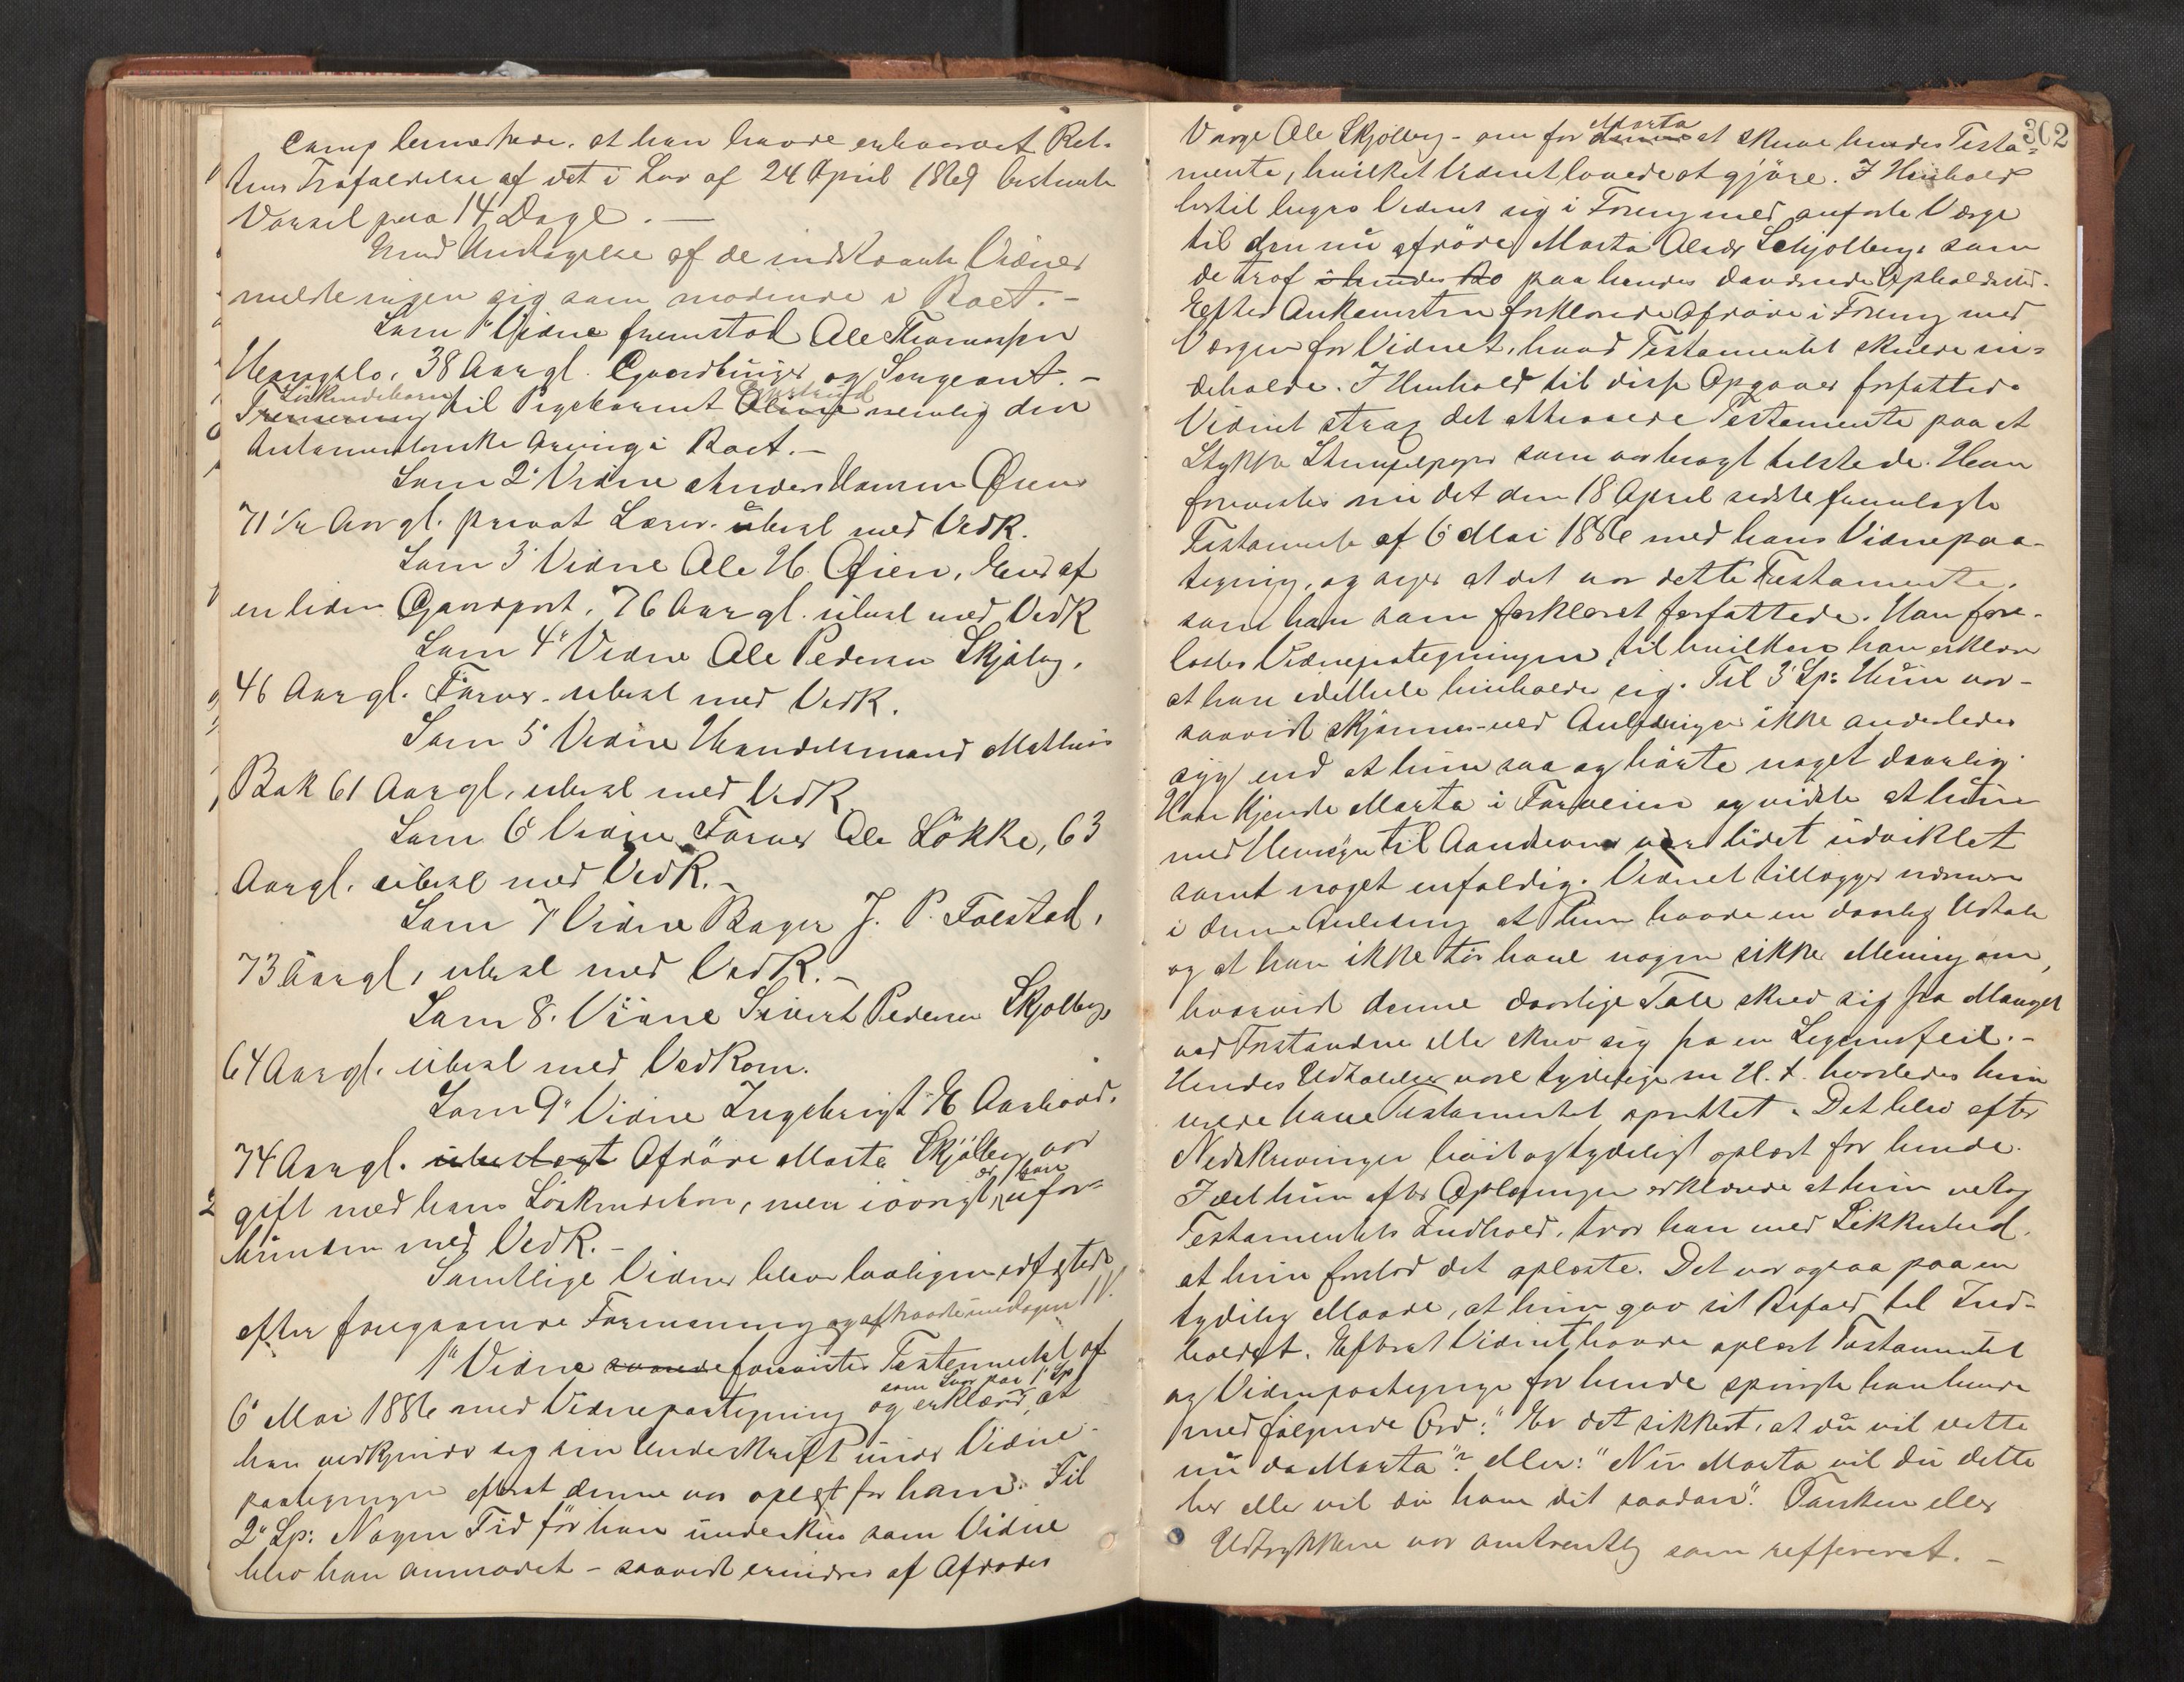 Camp bemærkede, at han havde erhvervet Ret-
tens Frafaldelse af det i Lov af 24 April 1869 bestemte
Varsel paa 14 Dage. —
Med Undtagelse af de indkaldte Vidner
meldte ingen sig som mødende i Raet. —
Som 1ste Vidne fremstod Ole Thomassen
Haugslo, 38 Aar gl. Gaardbruger og Sergeant. —
Søskendebarn
til Pigebarnet nemlig den
testamentariske Arving i Raet. —
Som 2' Vidne Anders Hansen Øien
71 1/2 Aar gl. privat Lærer. ubesl med VedK.
Som 3' Vidne Ole H. Øien, Eier af
en liden Gaardpart, 76 Aar gl. ubesl med VedK
Som 4' Vidne Ole Pedersen Skjølberg,
46 Aar gl. Farver. ubesl med VedK.
Som 5' Vidne Handelsmand Mathias
Bak 61 Aar gl, ubesl med VedK
Som 6' Vidne Farver Ole Løkke, 63
Aar gl. ubesl med VedK. —
Som 7' Vidne Bager J. P. Folstad,
73 Aar gl, ubesl med VedK. —
Som 8. Vidne Sivert Pedersen Skjølberg
64 Aar gl. ubesl med VedKom.
Som 9' Vidne Ingebrigt E Aarvaag.
74 Aar gl. ubeslagt Afdøde Marta Skjølberg var
er han
gift med hans Søskendebarn, men iøvrigt ufor-
bunden med VedK. —
Samtlige Vidner blev lovligen edfæstede
efter foregaaende Formaning og aftraadte undtagen 1 V.
1' Vidne forevistes Testamentet af
som Svar paa 1' Sp
6' Mai 1886 med Vidnepaategning og erklærer, at
han vedkjender sig sin Underskrift under Vidne-
paategningen efterat denne var oplæst for ham. Til
2' Sp: Nogen Tid før han underskrev som Vidne
blev han anmodet - saavidt erindres af Afdødes
302
Marta
Værge Ole Skjølberg - om for at skrive hendes Testa-
mente, hvilket Vidnet lovede at gjøre. I Henhold
hertil begav Vidnet sig i Forening med anførte Værge
til den nu afdøde Marta Olsdr Schjølberg som
de traf i hendes paa hendes daværende Opholdssted.
Efter Ankomsten forklarede Afdøde i Forening med
Værgen for Vidnet, hvad Testamentet skulde in-
deholde. I Henhold til disse Opgaver forfattede
Vidnet strax det atterede Testamente paa et
Stykke Stempelpapir som var bragt tilstede. Han
forevistes nu det den 18 April sidste fremlagte
Testamente af 6' Mai 1886 med hans Vidnepaa-
tegning, og siger at det var dette Testamente,
som han som forklaret forfattede. Han fore-
læstes Vidnepategningen, til hvilken han erklærer
at han i det Hele henholder sig. Til 3' Sp: Hun var -
saavidt skjønnes ved Anledningen ikke anderledes
syg end at hun saa og hørte noget daarlig.
Han kjendte Marta i Forveien og vidste at hun
med Hensyn til Aandsevner var lidet udviklet
samt noget enfoldig. Vidnet tillægger nærmere
i denne Anledning at hun havde en daarlig Udtale
og at han ikke tør have nogen sikker Mening om,
hvorvidt denne daarlige Tale skrev sig fra Mangel
ved Forstanden eller skrev sig fra en Legemsfeil. —
Hendes Udtalelser vare tydelige m H. t. hvorledes hun
vilde have Testamentet oprettet. Det blev efter
Nedskrivningen høit og tydeligt oplæst for hende.
Idet hun efter Oplæsningen erklærede at hun vedtog
Testamentets Indhold, tror han med Sikkerhed,
at hun forstod det oplæste. Det var ogsaa paa en
tydelig Maade, at hun gav sit Bifald til Ind-
holdet. Efterat Vidnet havde oplæst Testamentet
og Vidnepaategningen for hende spurgte han hende
med følgende Ord: "Er det sikkert, at du vil dette
nu da Marta"? eller: "Nu Marta vil du dette
her eller vil du have det saadan". Tanken eller
Udtrykkene var omtrentlig som refereret. —